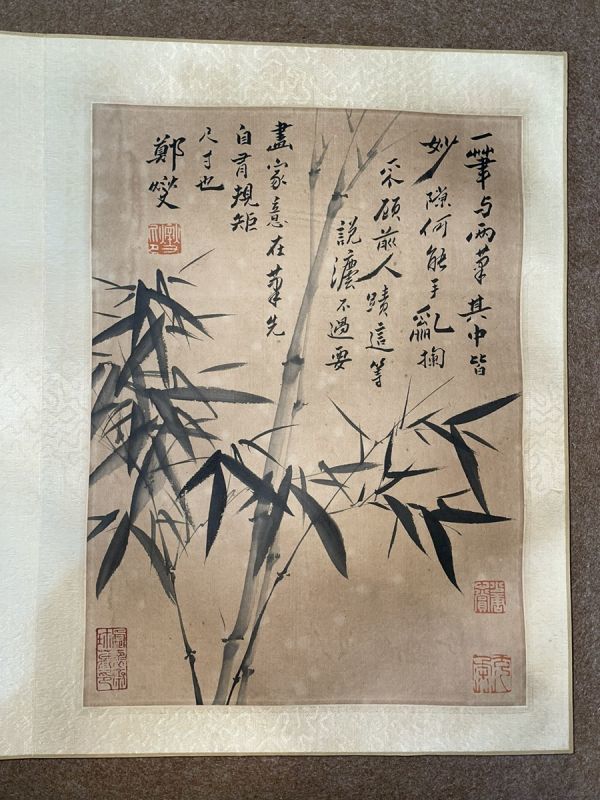 一筆与兩筆其中皆
妙隙何能手亂掬
采顧前人蹟這等
說不過要
畫家意在筆先
自有規矩
尺寸也
鄭燮